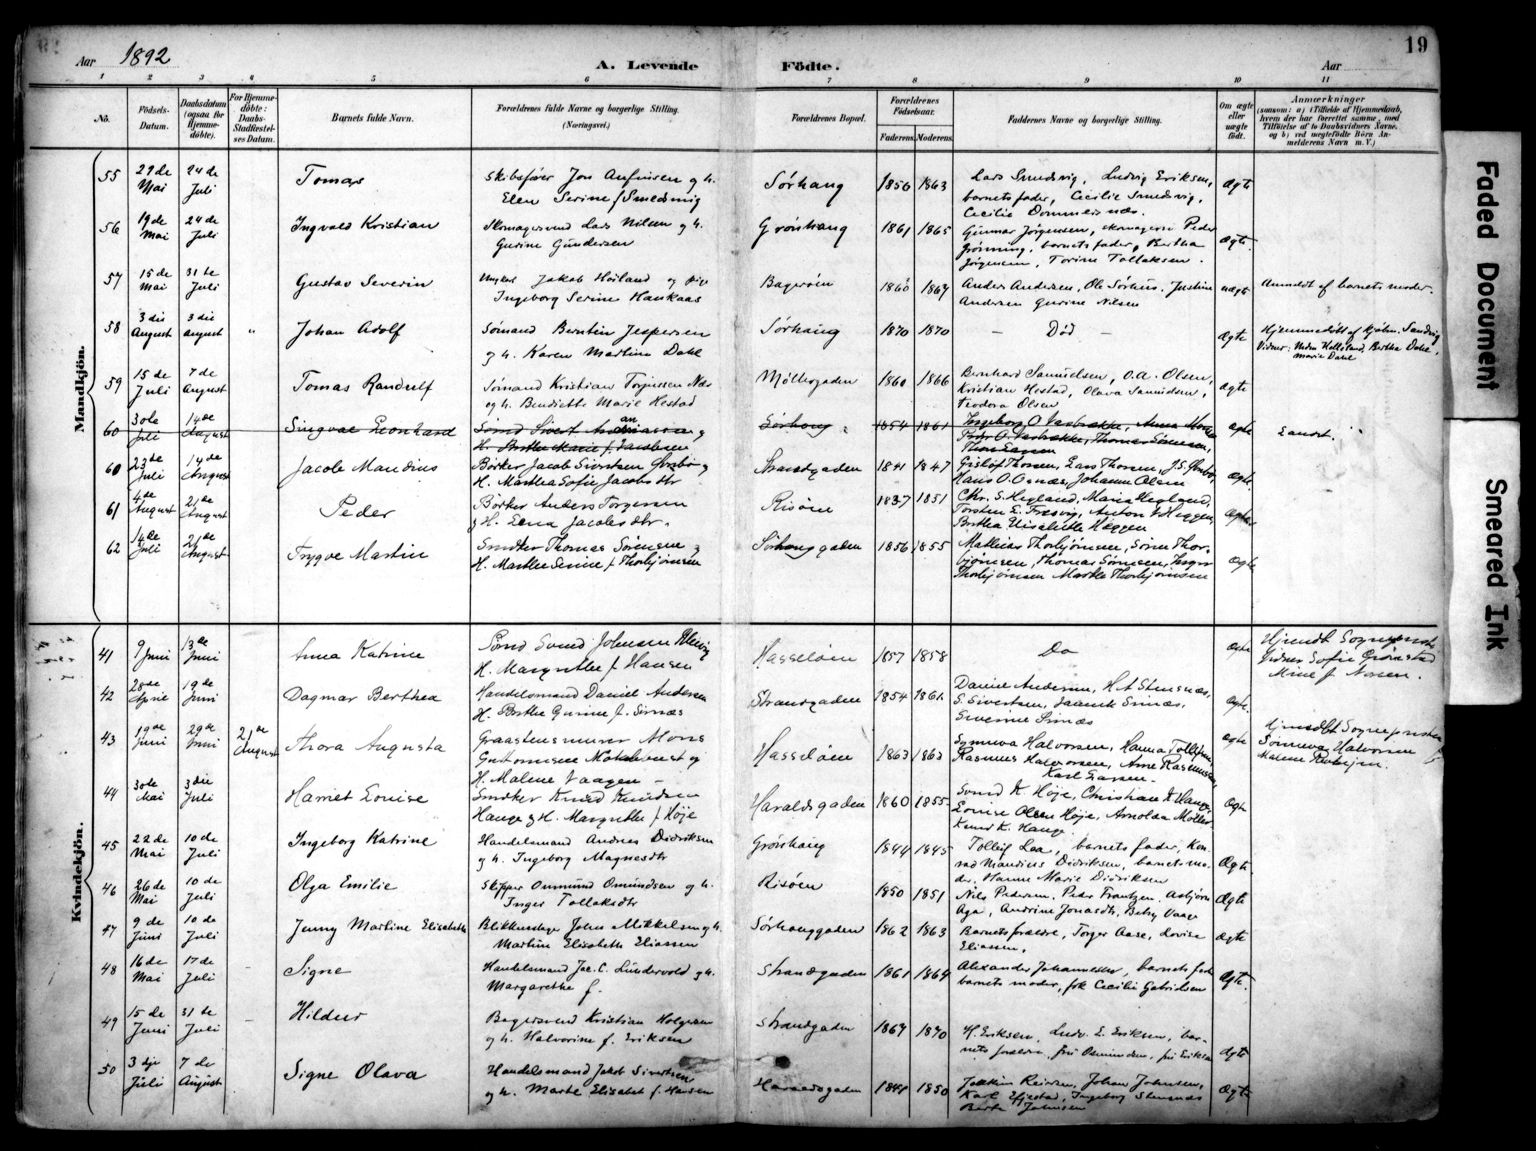 Aar 1892
A. Levende Födte.
Aar
19
1 2 3 4 5 6 7 8 9 10 11
No.
Födsels-Datum.
Daabsdatum (ogsaa for Hjemmedöbte).
For Hjemmedöbte: Daabs-Stadfæstelses Datum.
Barnets fulde Navn.
Forældrenes fulde Navne og borgerlige Stilling. (Næringsvei.)
Forældrenes Bopæl.
Forældrenes Födselsaar.
Faderens. Moderens.
Faddernes Navne og borgerlige Stilling.
Om ægte eller uægte födt.
Anmærkninger
(saasom: a) i Tilfælde af Hjemmedaab, hvem der har forrettet samme, med Tilföielse af to Daabsvidners Navne, og b) ved uegtefödte Börn Anmelderens Navn m. V.)
Mandkjön.
55 29 de Mai 24 de Juli Tomas Skibsfører Jon Anfinsen g h. Elen Serine f Smedsvig Sørhaug 1850 1863 Lars Smedsvig, Ludvig Eriksen, barnets fader, Cecilie Smedsvig, Cecilie Dommersnæs. Ægte
56 19 de Mai 24 de Juli Ingvald Kristian Skomagersvend Lars Nilsen g h. Gurine Gundersen Grønhaug 1861 1865 Gunnar Jørgensen, skomagersv Peder Grønning, barnets fader, Bertha Jørgensen, Torine Tollaksen. Ægte
57 15 de Mai 31 te Juli Gustav Severin Ungkar Jakob Høiland og pige Ingeborg Serine Haukaas Bagerøin 1860 1869 Anders Andersen, Ole Sørhus, Justine Andersen Gurine Nilsen uægte Anmeldt af barnets moder.
58 3 die August 3 die august " Johan Adolf Sømand Berntin Jespersen og h. Karen Martine Dahl Sørhaug 1870 1870 — Død — Ægte Hjemmedøbt af Kjøbm. Sandvig Vidner: Helliland, Bertha Dahl, Marie Dahl
59 15 de Juli 7 de August Tomas Randulf Sømand Kristian Torjussen Næs og h. Bendikte Marie Hestad Møllergaden 1860 1866 Bernhard Samuelsen, O.A. Olsen, Kristian Hestad, Olava Samuelsen, Teodora Olsen Ægte
60 30 te Juli 14 de August Singvae Leonhard Sømd Sivert Andreassen g H. Berthe Marie f. Jacobsen Sørhaug 1854 1861 Ingeborg O Vasbrække, Anna Peder O. Vasbrække, Thomas Sørensen, Thea Larsen Ægte Landet.
60 23 de Juli 14 de August Jacob Mandius Børker Jacob Sivertsen g H. Marthea Sofie Jacobsdtr Strandgaden 1841 1847 Gisløf Thorsen, Lars Thorsen, J.S. Hans O. Johanne Olsen Ægte.
61 4 de August 21 de August Peder Børker Anders Torgersen g H. Lena Jacobsdtr. Risøen 1837 1851 Chr. S. Hegland, Maria Hegland, Torsten E. Anton Heggen, Bertha Elisabeth Heggen Ægte
62 14 de Juli 21 de August Trygve Martin Smdker Thomas Sørensen g H. Marthe Serine f Thorbjørnsen Sørhauggaden 1856 1855 Mathias Thorbjørnsen, Søren Thorbjørnsen, Thomas Sørensen, Thorbjørnsen Marthe Thorbjørnsen Ægte
Kvindekjön.
41 9 Juni 13 de Juni Anna Katrine Sømd Svend Johnsen H. Margrethe f. Hansen Hasseløen 1857 1858 Do Ægte Hjemdt Sognepræst Vidner Sofie Grønstad f. Nossen.
42 28 de April 19 de Juni Dagmar Berthea Handelsmand Daniel Andersen H. Berthe Gurine f. Simæs Strandgaden 1854 1861 Daniel Andersen, H A Stensnæs, S. Sivertsen, Simæs, Severine Simæs Ægte.
43 19 de Juni 29 de Juni 21 de August Thora Augusta Graastensmurer Mons Guttormsen og H. Malene Vaagen — Hasseløen 1863 1863 Synneva Halvorsen, Hanna Tollefsen, Rasmus Halvorsen, Arne Rasmussen, Karl Larsen — Ægte Hjmdbt Sognepræsten Synneva Halvorsen Malene
44 30 te Mai 3 die Juli Harriet Louise Smdker Knud Knudsen Hauge g H. Margrethe f Høje Haraldsgaden 1860 1855 Svend K. Høje, Christian K Hauge, Louise Olsen Høje, Arnolda Møller Knud K. Hauge. Ægte
45 22 de Mai 10 de Juli Ingeborg Katrine Handelsmand Andreas Didriksen og h. Ingeborg Magnesdtr Grønhaug 1844 1845 Tolleif Laa, barnets fader, Konrad Mandius Didriksen, barnets moder, Hanne Marie Didriksen Ægte.
46 26 de Mai 10 de Juli Olga Emilie Skipper Ommund Omundsen og h. Inger Tollaksdtr Risøen 1850 1851 Nils Pedersen, Peder Frantzen, Asbjørn Aga, Andrine Jonasdtr, Betsy Vaage Ægte
47 9 de Juni 10 de Juli Jenny Martine Elisabeth Blikkenslager John Mikkelsen og h. Martine Elisabeth Eliassen Sørhauggaden 1862 1863 Barnets forældre, Torger Aase, Lovise Eliassen. Ægte
48 16 de Mai 17 de Juli Signe Handelsmand Jac. C. Lundervold g h. Margarethe f. Strandgaden 1861 1864 Alexander Johannessen, barnets fad barnets moder, frk Cecilie Gabrielsen Ægte.
49 15 de Juni 31 te Juli Hildur Bagersvend Kristian Holgersen og h. Halvorine f. Eriksen Strandgaden 1869 1870 H. Eriksen, Ludv. E. Eriksen, barnets forældre, fru Osmundsen, fru Eriksen Ægte
50 3 dje Juli 7 de August Signe Olava Handelsmand Jakob Sivertsen og h. Marte Elisabet f. Hansen Haraldsgaden 1848 1850 Joakim Reiersen, Johan Johnsen, Karl Ingeborg Stensnæs Berte Johnsen Ægte
Faded Document
Smeared Ink